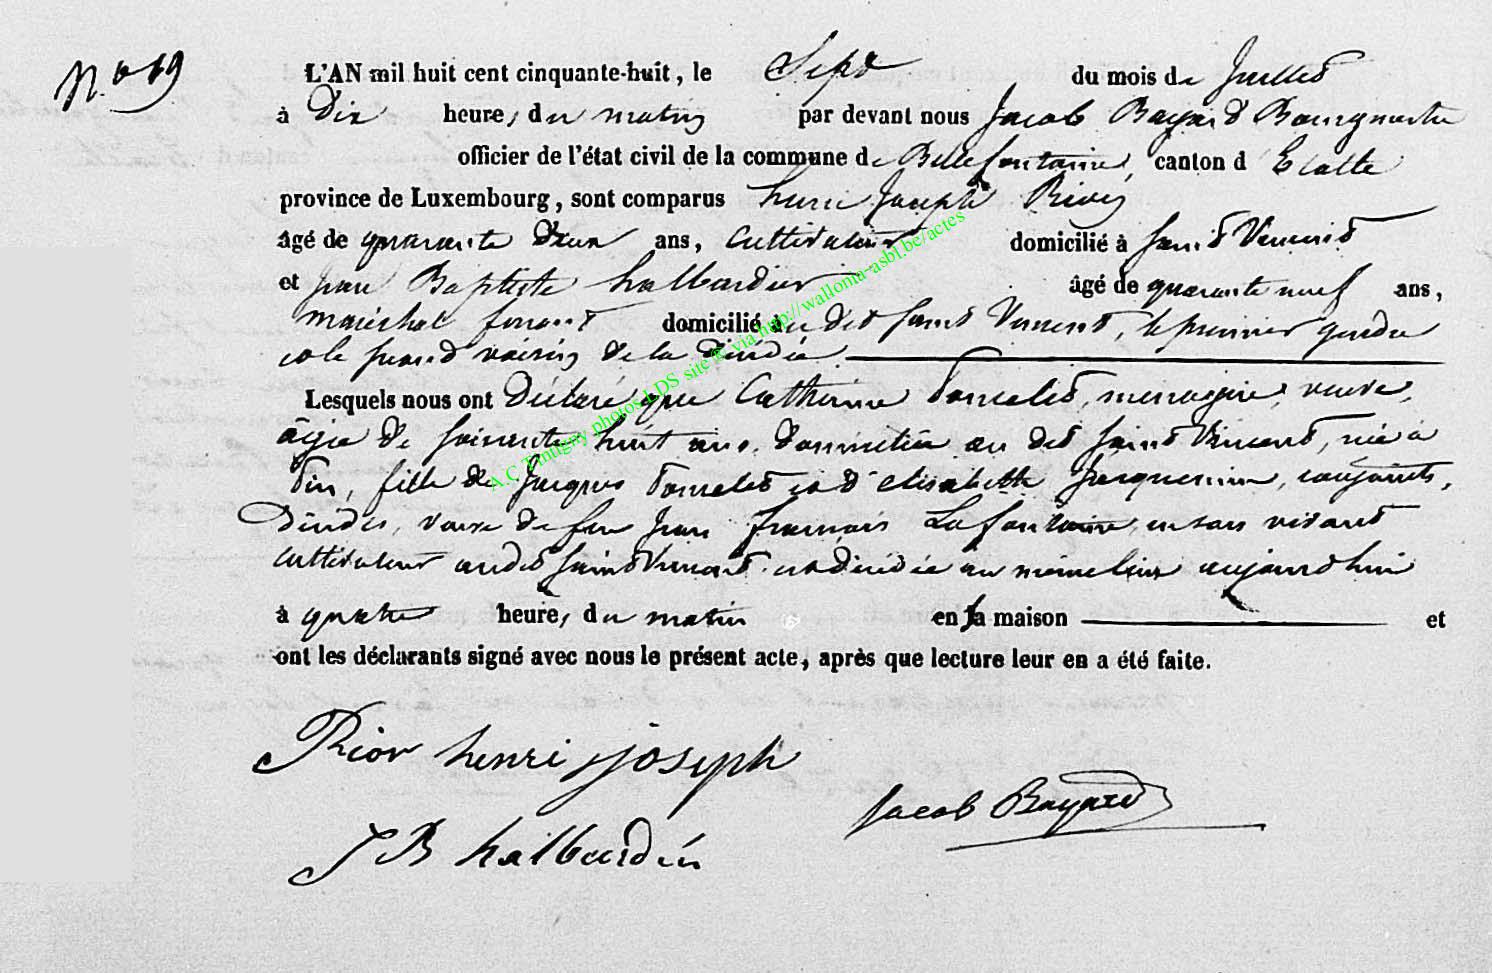 N.o 19
L'AN mil huit cent cinquante-huit, le Sept du mois de Juillet
à Dix heures du matin par devant nous Jacob Bayard Bourgmestre
officier de l'état civil de la commune de Bellefontaine, canton d'Etalle
province de Luxembourg, sont comparus henri Joseph
âgé de quarante deux ans, Cultivateur domicilié à Saint Vincent
et Jean Baptiste halbardier âgé de quarante neuf ans,
maréchal ferrant domicilié au dit Saint Vincent, le premier gendre
et le second voisin de la décédée
Lesquels nous ont Déclaré que Catherine menagère, veuve,
âgée de soixante huit ans, domiciliée au dit Saint Vincent, née à
Tin, fille de Jacques et d'Elisabeth Jacquemin, conjoints,
décédés, veuve de feu Jean François Lafontaine, en son vivant
cultivateur audit Saint Vincent est décédée au même lieu aujourdhui
à quatre heures du matin en sa maison et
ont les déclarants signé avec nous le présent acte, après que lecture leur en a été faite.
A.C Tintigny photos LDS site & via http://wallonia-asbl.be/actes
henri joseph
Jacob Bayard
J B halbardier